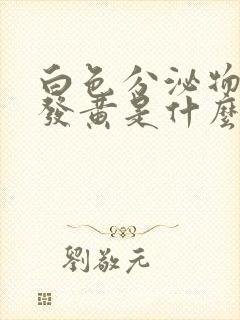 白色分泌物
發黃是什麼
劉敬元